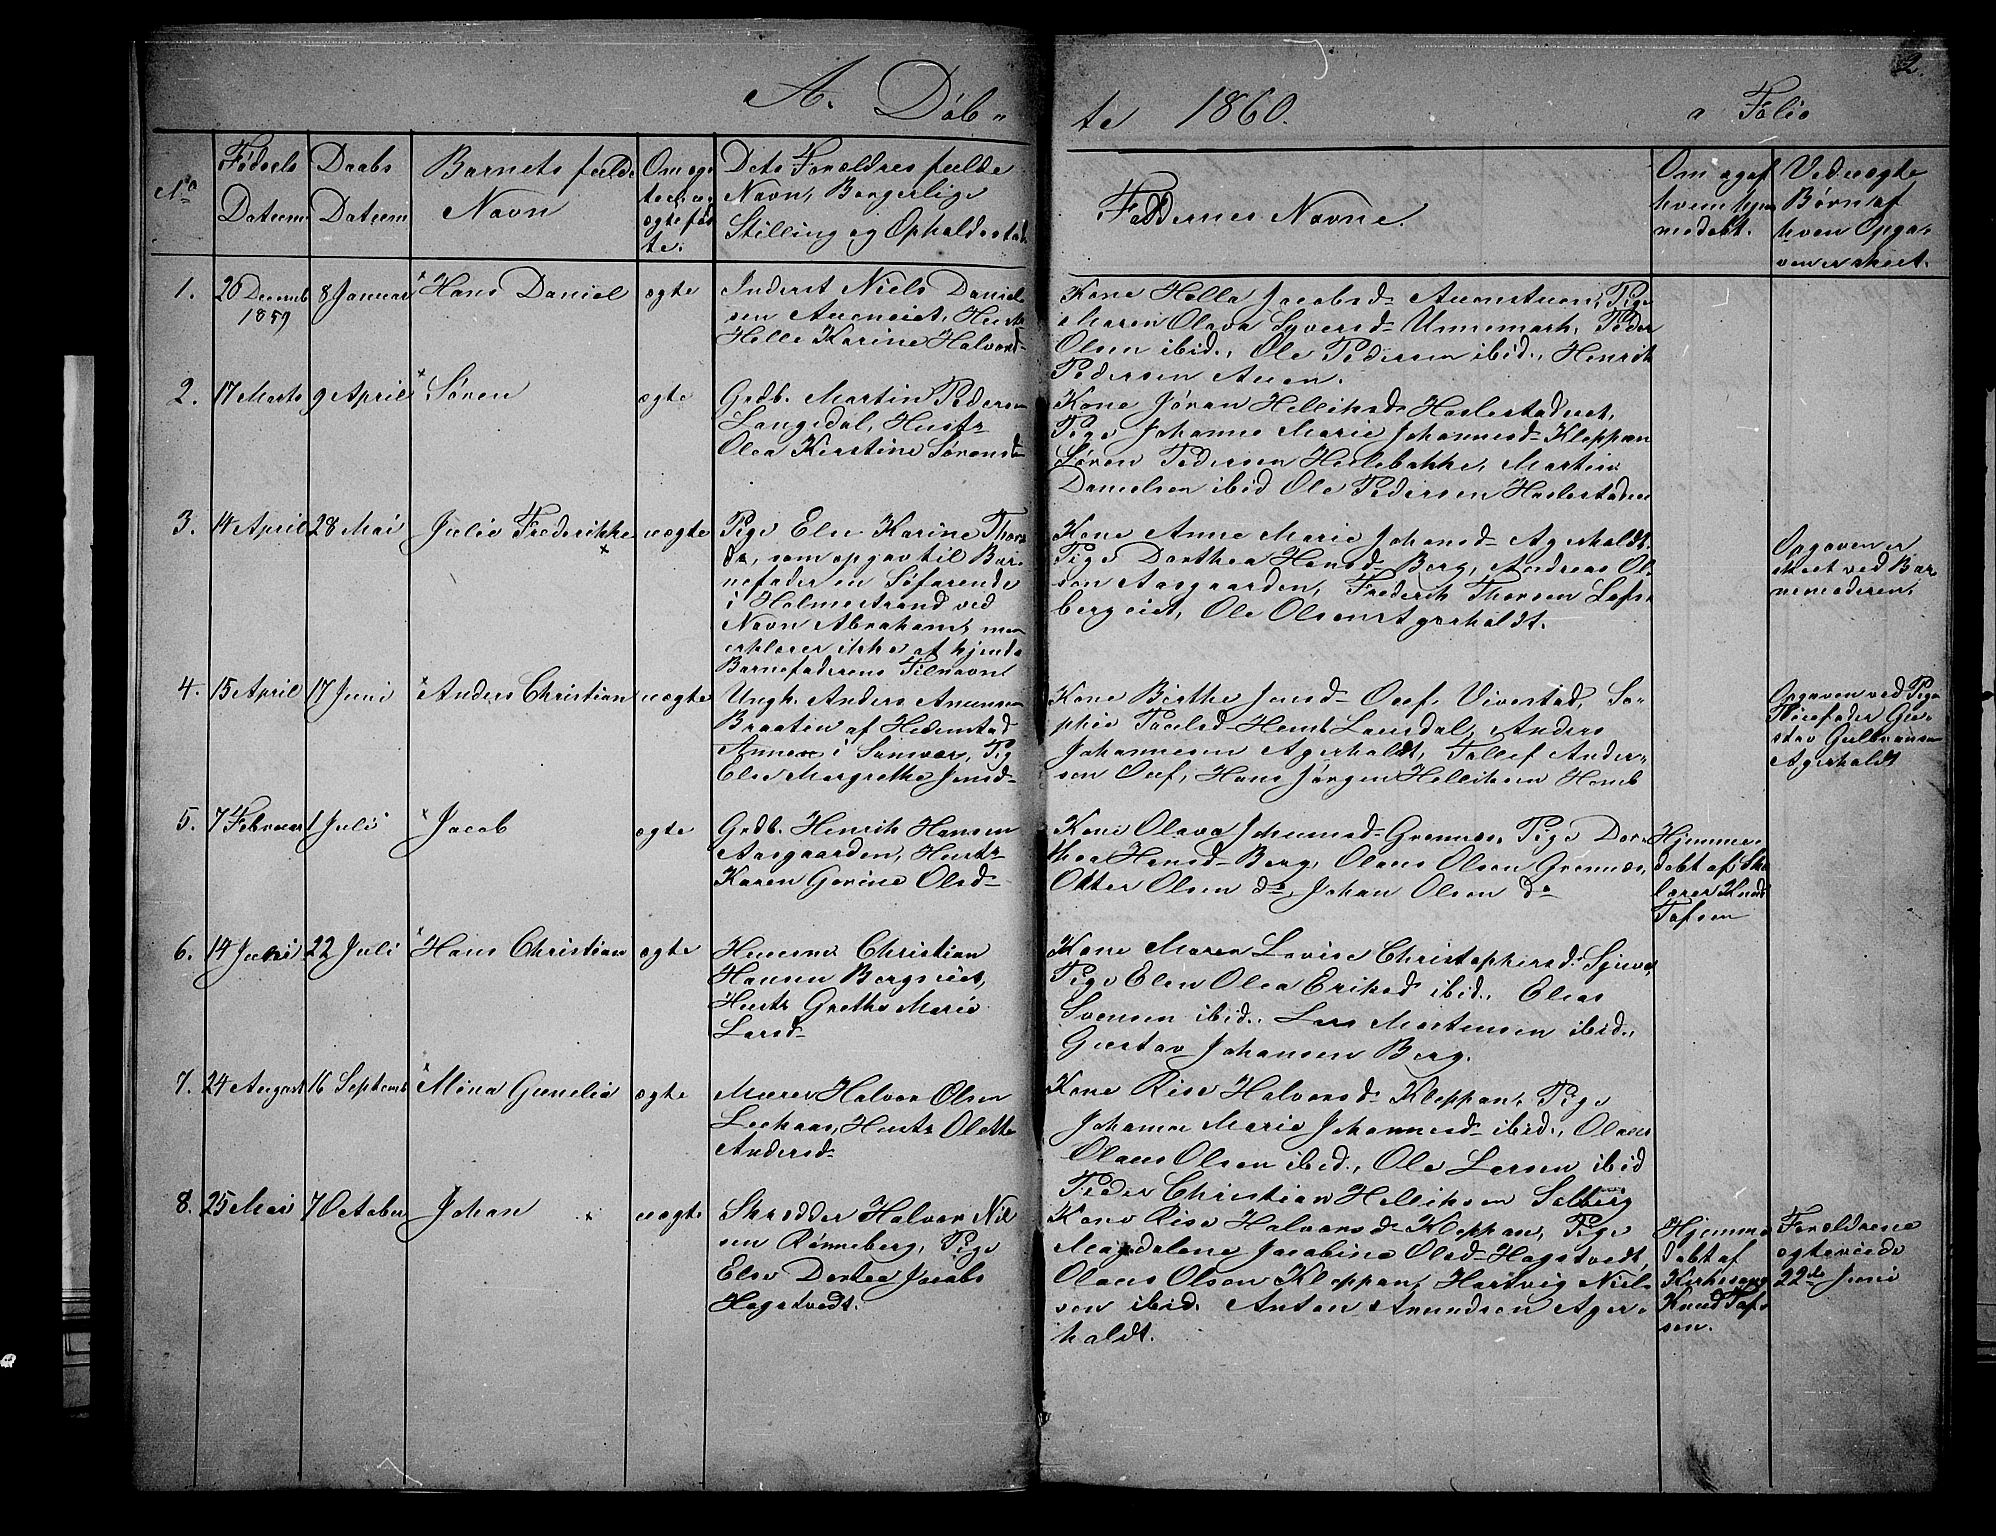 2.
A. Døb-
te 1860.
a Folio
No
Fødsels
Datum
Daabs
Datum
Barnets fulde
Navn
Om æg
te el. u
ægtefød
te.
Dets Forældres fulde
Navn, Borgerlige
Stilling og Opholdssted
Faddernes Navne.
Om og af
hvem hjem
medøbt.
Ved uægte
Børn af
hvem Opga-
ven er skeet.
1.
26 Decemb
1859
8 Januar
Hans Daniel
ægte
Inderst Niels Daniel-
sen Aueneiet, Hustr
Helle Karine Halvorsd-
Kone Helle Jacobsd- Auenstuen, Pige
Maren Olava Syversd- Unnemark, Peder
Olsen ibid., Ole Pedersen ibid., Henrik
Pedersen Auen.
2.
17 Marts
9 April
Søren
ægte
Grdb. Martin Pedersen
Langedal, Hustr
Olea Kirstine Sørensd-
Kone Jøran Helliksd- Haslestadeiet,
Pige Johanne Marie Johannesd- Kleppan
Søren Pedersen Haslebakke, Martin
Danielsen ibid Ole Pedersen Haslestadei
3.
14 April
28 Mai
Julie Frederikke
uægte
Pige Else Karine Thors
dr, som opgav til Bar-
nefader en Søfarende
i Holmestrand ved
Navn Abraham, men
erklærer ikke at kjende
Barnefaderens Tilnavn
Kone Anne Marie Johansd- Agerholdt,
Pige Dorthea Hansd- Berg, Andreas Ol-
sen Aasgaarden, Frederik Thorsen Lofs-
bergeiet, Ole Olsen Agerholdt.
Opgaven er
skeet ved Bar
nemoderen.
4.
15 April
17 Juni
Anders Christian
uægte
Ungk. Anders Amundsen
Braaten af Hedenstad
Annex i Sansvær, Pig
Else Margrethe Jensd-
Kone Birthe Jensd- Ouf, Vivestad, So-
phie Paulsd- Hemb Lauvdal, Anders
Johannesen Agerholdt, Tollef Ander-
sen Ouf, Hans Jørgen Helliksen Hemb
Opgaven ved Pige
Stiefader Gu-
stav Gulbransen
Agerholdt
5.
7 Februar
1 Juli
Jacob
ægte
Grdb. Henrik Hansen
Aasgaarden, Hustr-
Karen Gorine Olsd-
Kone Olava Johansd- Grønnæs, Pige Dor-
thea Hansd- Berg, Olaus Olsen Grønnæs,
Otter Olsen do, Johan Olsen do
Hjemme-
døbt af Sko
lærer Knud
Tofsen
6.
14 Juni
22 Juli
Hans Christian
ægte
Huusm Christian
Hansen Bergseiet,
Hustr Grethe Marie
Larsd-
Kone Maren Lovise Christophersd- Sjue,
Pige Elen Olea Eriksd ibid., Elias
Svensen ibid., Lars Mortensen ibid.,
Gustav Johansen Berg.
7.
24 August
16 Septemb
Mina Gunelia
ægte
Murer Halvor Olsen
Lechaas, Hustr Olette
Andersd-
Kone Rise Halvorsd- Kleppan, Pige
Johanne Marie Johannesd- ibid., Olaus
Olaus Olsen ibid., Ole Larsen ibid
Peder Christian Helliksen Solberg
8.
25 Mai
7 October
Johan
uægte
Skrædder Halvor Niel
sen Rønneberg, Pige
Else Dortea Jacobs
Hagstvedt.
Kone Rise Halvorsd- Kleppan, Pige
Magdalene Jacobine Olsd- Hagstvedt,
Olaus Olsen Kleppan, Hartvig Niel-
sen ibid. Anton Amundsen Ager-
holdt.
Hjemme
døbt af
Kirkesang
Knud Tof-
sen.
Forældrene
ægteviede
22de Juni